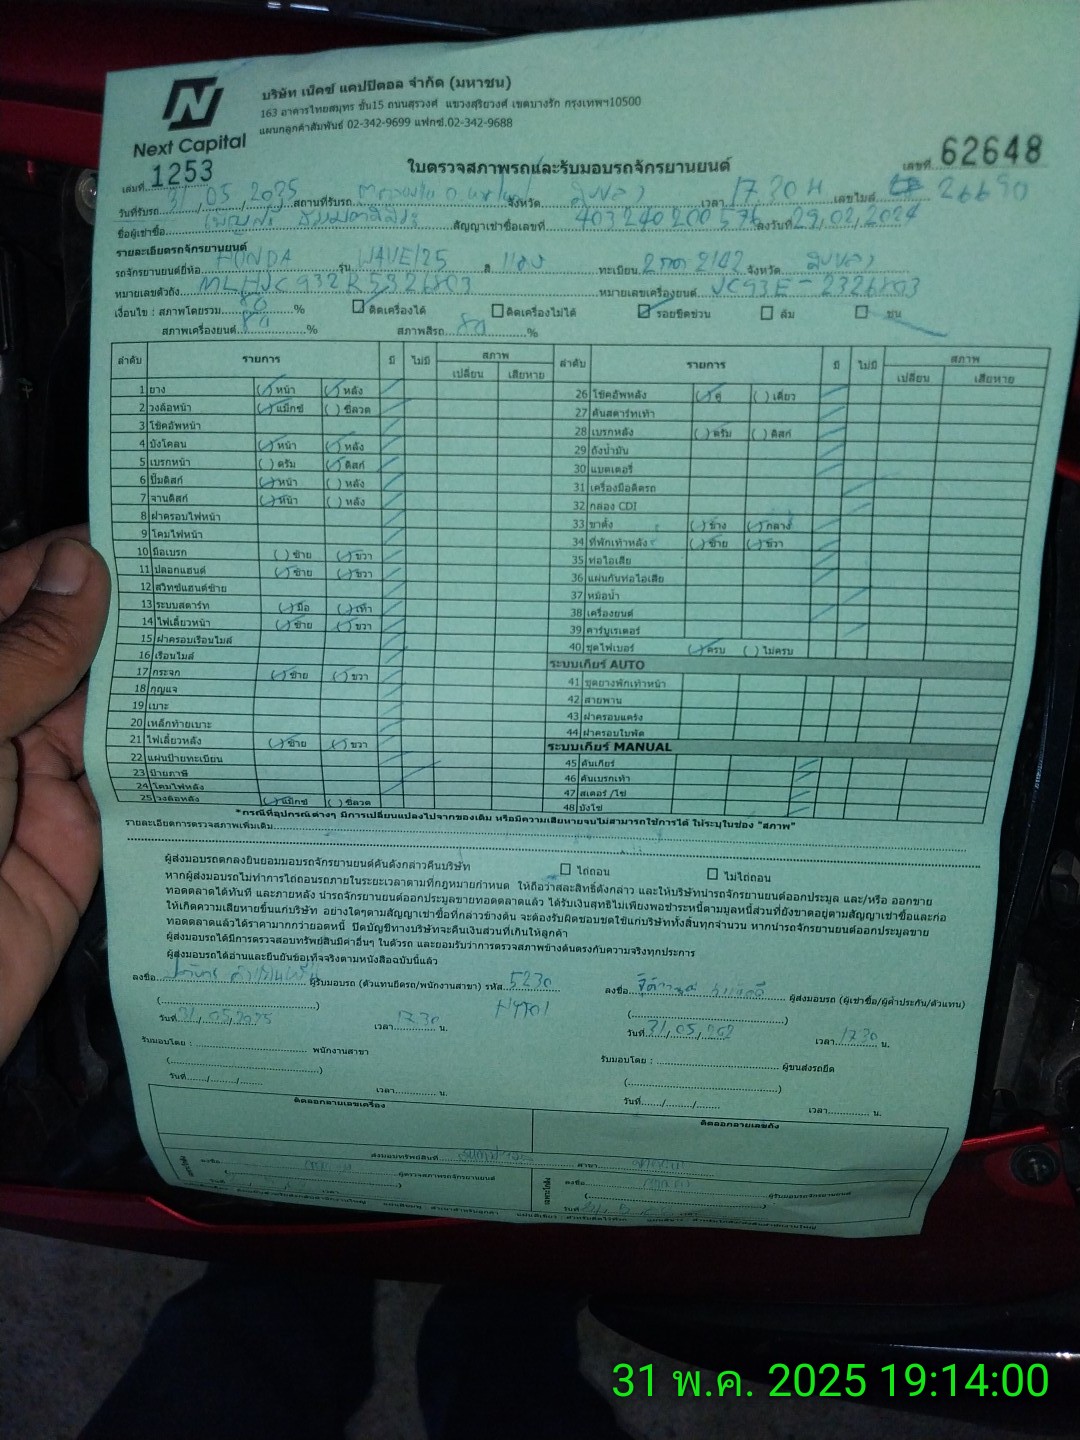 บริษัท เน็คซ์ แคปปิตอล จำกัด (มหาชน)
163 อาคารไทยสมุทร ชั้น15 ถนนสุรวงศ์ แขวงสุริยวงศ์ เขตบางรัก กรุงเทพฯ10500
แผนกลูกค้าสัมพันธ์ 02-342-9699 แฟกซ์.02-342-9688
Next Capital
เล่มที่ 1253
ใบตรวจสภาพรถและรับมอบรถจักรยานยนต์
เลขที่ 62648
วันที่รับรถ 31/05/2025 สถานที่รับรถ จังหวัด สงขลา เวลา 17.30 น เลขไมล์ 26690
ชื่อผู้เช่าซื้อ สัญญาเช่าซื้อเลขที่ ลงวันที่ 29/02/2024
รายละเอียดรถจักรยานยนต์
รถจักรยานยนต์ยี่ห้อ HONDA รุ่น WAVE125 สี แดง ทะเบียน จังหวัด สงขลา
หมายเลขตัวถัง หมายเลขเครื่องยนต์ JC93E-2326803
เงื่อนไข : สภาพโดยรวม 80 % ติดเครื่องได้ ติดเครื่องไม่ได้ รอยขีดข่วน ล้ม ชน
สภาพเครื่องยนต์ 80 % สภาพสีรถ 80 %
ลำดับ รายการ มี ไม่มี สภาพ เปลี่ยน เสียหาย
1 ยาง หน้า หลัง
2 วงล้อหน้า แม็กซ์ ซี่ลวด
3 โช๊คอัพหน้า
4 บังโคลน หน้า หลัง
5 เบรกหน้า ดรัม ดิสก์
6 ปั๊มดิสก์ หน้า หลัง
7 จานดิสก์ หน้า หลัง
8 ฝาครอบไฟหน้า
9 โคมไฟหน้า
10 มือเบรก ซ้าย ขวา
11 ปลอกแฮนด์ ซ้าย ขวา
12 สวิทซ์แฮนด์ซ้าย
13 ระบบสตาร์ท มือ เท้า
14 ไฟเลี้ยวหน้า ซ้าย ขวา
15 ฝาครอบเรือนไมล์
16 เรือนไมล์
17 กระจก ซ้าย ขวา
18 กุญแจ
19 เบาะ
20 เหล็กท้ายเบาะ
21 ไฟเลี้ยวหลัง ซ้าย ขวา
22 แผ่นป้ายทะเบียน
23 ป้ายภาษี
24 โคมไฟหลัง
25 วงล้อหลัง แม็กซ์ ซี่ลวด
ลำดับ รายการ มี ไม่มี สภาพ เปลี่ยน เสียหาย
26 โช๊คอัพหลัง คู่ เดี่ยว
27 คันสตาร์ทเท้า
28 เบรกหลัง ดรัม ดิสก์
29 ถังน้ำมัน
30 แบตเตอรี่
31 เครื่องมือติดรถ
32 กล่อง CDI
33 ขาตั้ง ข้าง กลาง
34 ที่พักเท้าหลัง ซ้าย ขวา
35 ท่อไอเสีย
36 แผ่นกันท่อไอเสีย
37 หม้อน้ำ
38 เครื่องยนต์
39 คาร์บูเรเตอร์
40 ชุดไฟเบอร์ ครบ ไม่ครบ
ระบบเกียร์ AUTO
41 ชุดยางพักเท้าหน้า
42 สายพาน
43 ฝาครอบแคร้ง
44 ฝาครอบใบพัด
ระบบเกียร์ MANUAL
45 คันเกียร์
46 คันเบรกเท้า
47 สเตอร์ /โซ่
48 บังโซ่
*กรณีที่อุปกรณ์ต่างๆ มีการเปลี่ยนแปลงไปจากของเดิม หรือมีความเสียหายจนไม่สามารถใช้การได้ ให้ระบุในช่อง "สภาพ"
รายละเอียดการตรวจสภาพเพิ่มเติม
ผู้ส่งมอบรถตกลงยินยอมมอบรถจักรยานยนต์คันดังกล่าวคืนบริษัท ไถ่ถอน ไม่ไถ่ถอน
หากผู้ส่งมอบรถไม่ทำการไถ่ถอนรถภายในระยะเวลาตามที่กฎหมายกำหนด ให้ถือว่าสละสิทธิ์ดังกล่าว และให้บริษัทนำรถจักรยานยนต์ออกประมูล และ/หรือ ออกขาย
ทอดตลาดได้ทันที และภายหลัง นำรถจักรยานยนต์ออกประมูลขายทอดตลาดแล้ว ได้รับเงินสุทธิไม่เพียงพอชำระหนี้ตามมูลหนี้ส่วนที่ยังขาดอยู่ตามสัญญาเช่าซื้อและก่อ
ให้เกิดความเสียหายขึ้นแก่บริษัท อย่างใดๆตามสัญญาเช่าซื้อที่กล่าวข้างต้น จะต้องรับผิดชอบชดใช้แก่บริษัททั้งสิ้นทุกจำนวน หากนำรถจักรยานยนต์ออกประมูลขาย
ทอดตลาดแล้วได้ราคามากกว่ายอดหนี้ ปิดบัญชีทางบริษัทจะคืนเงินส่วนที่เกินให้ลูกค้า
ผู้ส่งมอบรถได้มีการตรวจสอบทรัพย์สินมีค่าอื่นๆ ในตัวรถ และยอมรับว่าการตรวจสภาพข้างต้นตรงกับความจริงทุกประการ
ผู้ส่งมอบรถได้อ่านและยืนยันข้อเท็จจริงตามหนังสือฉบับนี้แล้ว
ลงชื่อ ผู้รับมอบรถ (ตัวแทนยึดรถ/พนักงานสาขา) รหัส 5230
ลงชื่อ ผู้ส่งมอบรถ (ผู้เช่าซื้อ/ผู้ค้ำประกัน/ตัวแทน)
วันที่ 31/05/2025 เวลา 17.30 น.
วันที่ 31/05/202 เวลา 17.30 น.
รับมอบโดย : พนักงานสาขา
รับมอบโดย : ผู้ขนส่งรถยึด
วันที่ เวลา น.
วันที่ เวลา น.
ติดลอกลายเลขเครื่อง
ติดลอกลายเลขถัง
ส่งมอบทรัพย์สินที่ สาขา
ลงชื่อ ผู้ตรวจสภาพรถจักรยานยนต์
ลงชื่อ ผู้รับมอบรถจักรยานยนต์
31 พ.ค. 2025 19:14:00